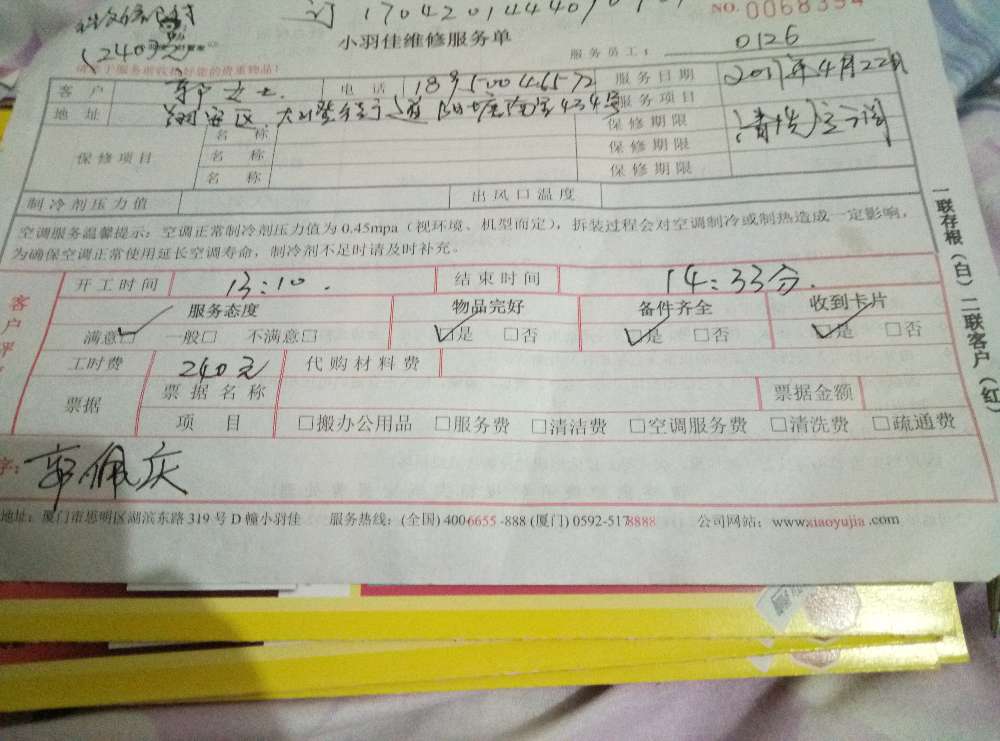 (240元)
NO.0068394
小羽佳维修服务单
服务员工: 0126
客户 电话 服务日期 2017年4月22日
地址 翔安区 服务项目 清洗空调
保修项目 名称 保修期限
名称 保修期限
名称 保修期限
制冷剂压力值 出风口温度
空调服务温馨提示:空调正常制冷剂压力值为0.45mpa(视环境、机型而定),拆装过程会对空调制冷或制热造成一定影响,
为确保空调正常使用延长空调寿命,制冷剂不足时请及时补充。
开工时间 13:10. 结束时间 14:33分.
服务态度 物品完好 备件齐全 收到卡片
满意☑ 一般□ 不满意□ ☑是 □否 ☑是 □否 ☑是 □否
工时费 240元 代购材料费
票据 票据名称 票据金额
项目 □搬办公用品 □服务费 □清洁费 □空调服务费 □清洗费 □疏通费
郭佩庆
地址:厦门市思明区湖滨东路319号D幢小羽佳 服务热线:(全国)4006655-888(厦门)0592-5178888 公司网站:www.xiaoyujia.com
一联存根(白)二联客户(红)